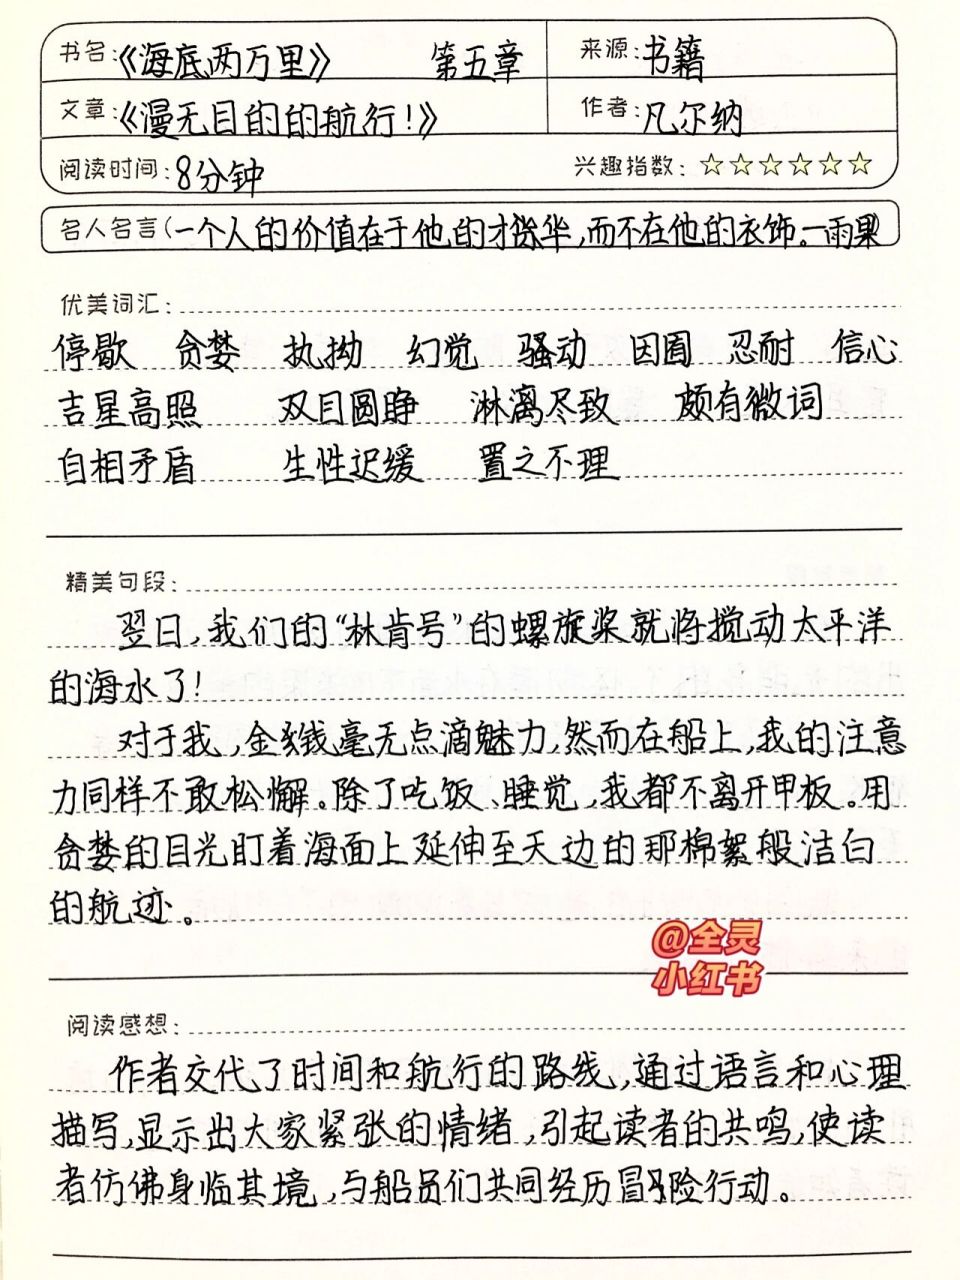 书名:《海底两万里》 第五章 来源:书籍
文章:《漫无目的的航行!》 作者:凡尔纳
阅读时间:8分钟 兴趣指数:☆☆☆☆☆☆
名人名言(一个人的价值在于他的才华,而不在他的衣饰。—雨果)
优美词汇:
停歇 贪婪 执拗 幻觉 骚动 因囿 忍耐 信心
吉星高照 双目圆睁 淋漓尽致 颇有微词
自相矛盾 生性迟缓 置之不理
精美句段:
翌日,我们的“林肯号”的螺旋桨就将搅动太平洋
的海水了!
对于我,金钱毫无点滴魅力,然而在船上,我的注意
力同样不敢松懈。除了吃饭、睡觉,我都不离开甲板。用
贪婪的目光盯着海面上延伸至天边的那棉絮般洁白
的航迹。
@全灵
小红书
阅读感想:
作者交代了时间和航行的路线,通过语言和心理
描写,显示出大家紧张的情绪,引起读者的共鸣,使读
者仿佛身临其境,与船员们共同经历冒险行动。